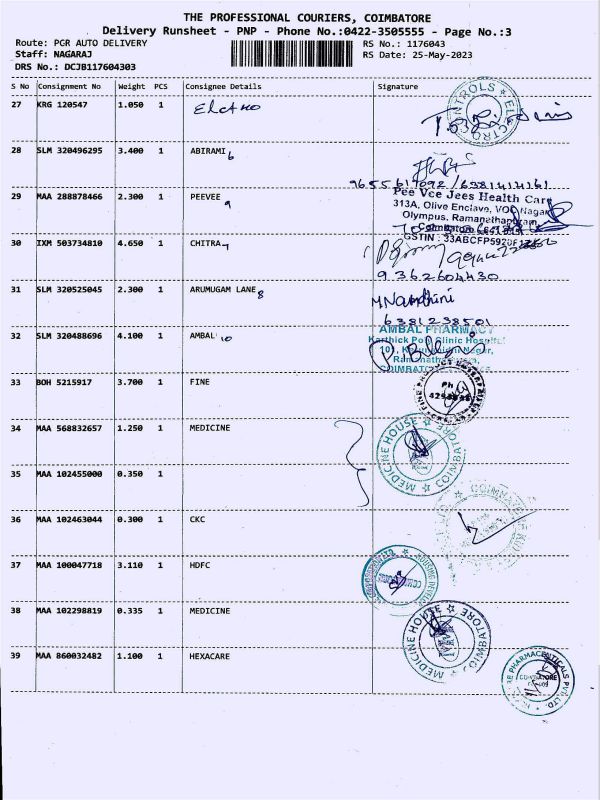 THE PROFESSIONAL COURIERS, COIMBATORE
Delivery Runsheet - PNP - Phone No.:0422-3505555 - Page No.:3
Route: PGR AUTO DELIVERY
RS No.: 1176043
Staff: NAGARAJ
RS Date: 25-May-2023
DRS No.: DCJB117604303
S No Consignment No Weight PCS Consignee Details Signature
27 KRG 120547 1.050 1
CONTROLS ELECTRO
28 SLM 320496295 3.400 1 ABIRAMI 6
9655617092 / 6381414161
29 MAA 288878466 2.300 1 PEEVEE 9
Pee Vee Jees Health Care
313A, Olive Enclave, VOC Nagar
Olympus, Ramanathapuram
Coimbatore
GSTIN : 33ABCFP5920F
30 IXM 503734810 4.650 1 CHITRA 7
9362604430
31 SLM 320525045 2.300 1 ARUMUGAM LANE 8
M Nandhini
6381238501
32 SLM 320488696 4.100 1 AMBAL 10
AMBAL PHARMACY
Karthick Poly Clinic Hospital
Nagar,
COIMBATORE
33 BOH 5215917 3.700 1 FINE
FINE PRODUCT ENTERPRISES
Ph
34 MAA 568832657 1.250 1 MEDICINE
MEDICINE HOUSE COIMBATORE
35 MAA 102455000 0.350 1
36 MAA 102463044 0.300 1 CKC
37 MAA 100047718 3.110 1 HDFC
38 MAA 102298819 0.335 1 MEDICINE
MEDICINE HOUSE COIMBATORE
39 MAA 860032482 1.100 1 HEXACARE
PHARMACEUTICALS PVT. LTD.
COIMBATORE